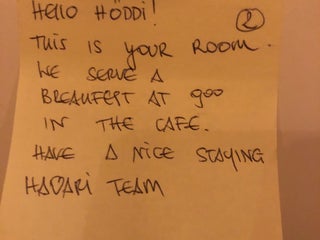 HELLO HÖDDI!
2
THIS IS YOUR ROOM.
WE SERVE A
BREAUFEST AT 900
IN THE CAFE.
HAVE A NICE STAYING
HAVARI TEAM